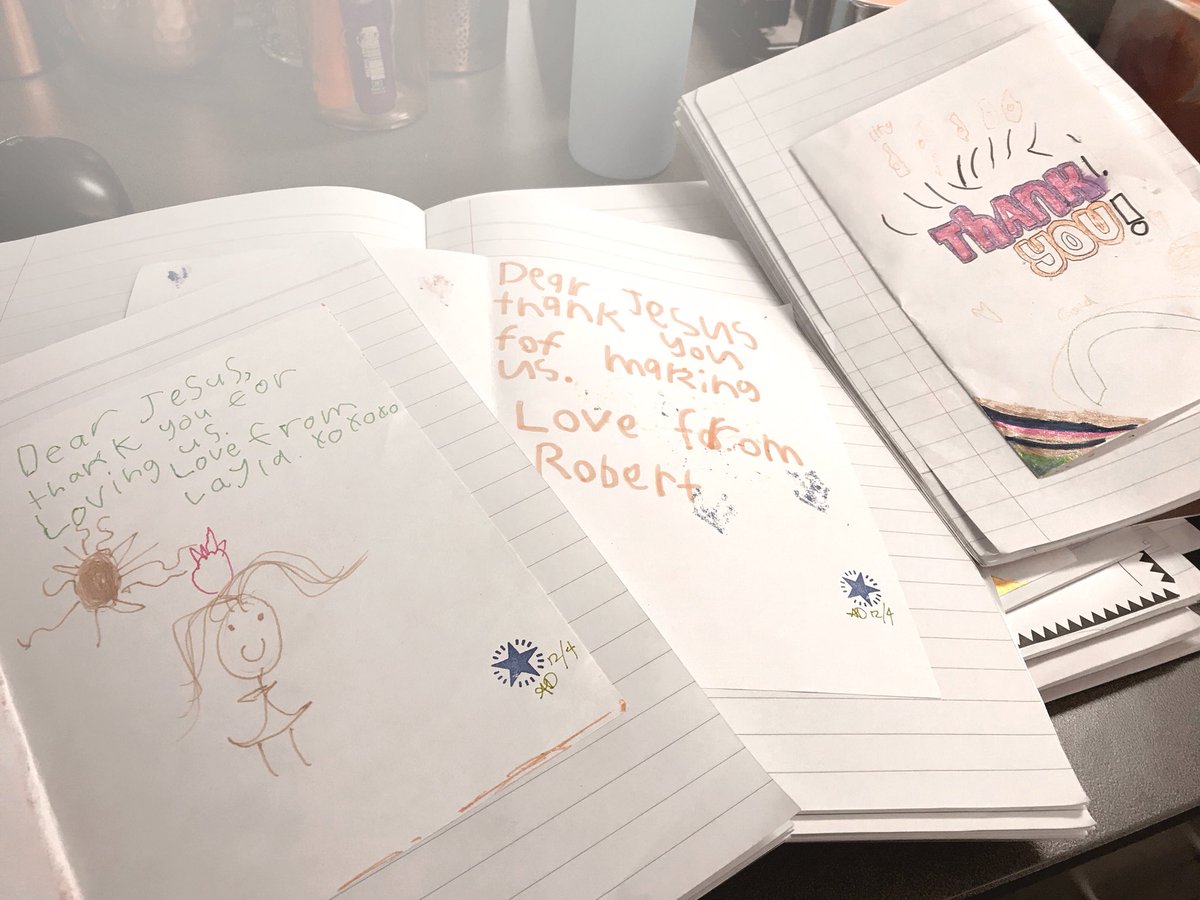 Dear Jesus,
thank you for
Loving us.
Love from
Layla.
xoxoxo
12/4
Dear Jesus
thank you
fof making
us.
Love from
Robert
AD 12/4
THANK
YOU!